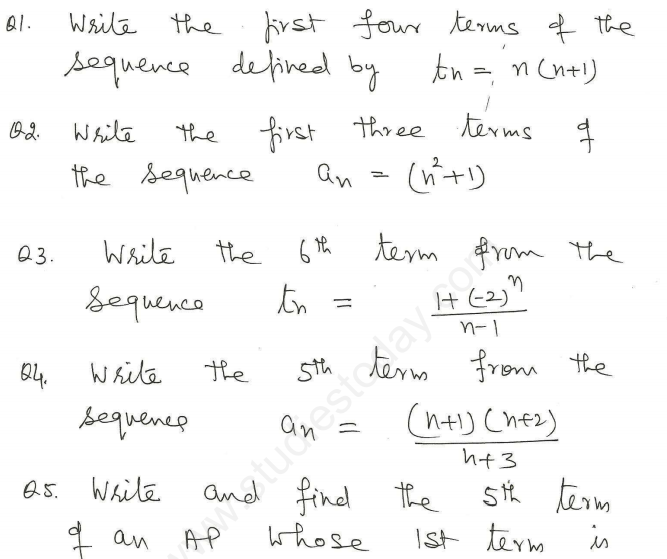 Q1. Write the first four terms of the
sequence defined by tn = n (n+1)
Q2. Write the first three terms of
the sequence an = (n²+1)
Q3. Write the 6th term from the
sequence tn = 1+(-2)ⁿ / n-1
Q4. Write the 5th term from the
sequence an = (n+1) (n+2) / n+3
Q5. Write and find the 5th term
of an AP whose 1st term is
www.studiestoday.com